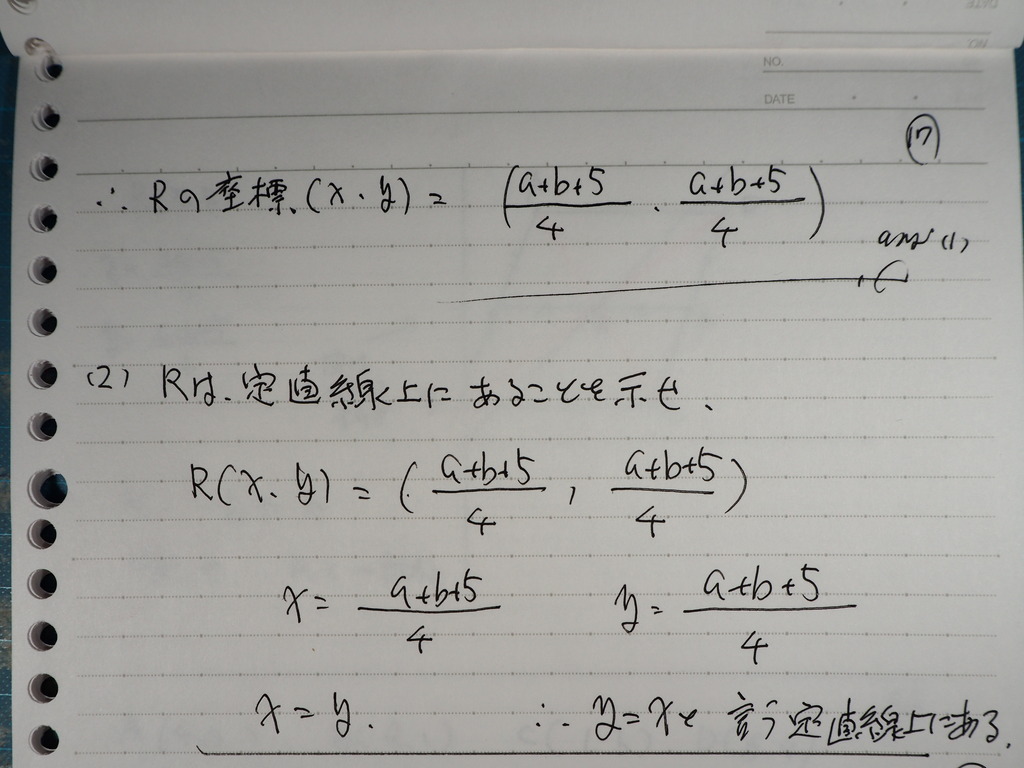 NO.
DATE
⑰
∴ Rの座標、(x、y) = (a+b+5/4 、 a+b+5/4)
ans (1)
(2) Rは、定直線上にあることを示せ、
R(x、y) = (a+b+5/4 , a+b+5/4)
x = a+b+5/4 y = a+b+5/4
x = y. ∴ y=xと 言う定直線上にある.